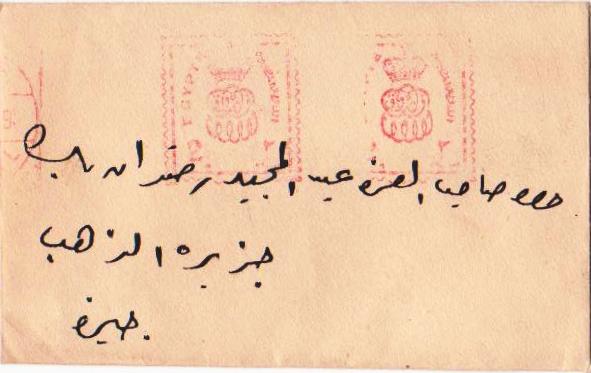 EGYPTE
حضرة صاحب العزة عبد المجيد رضوان بك
جزيرة الذهب
جيزة